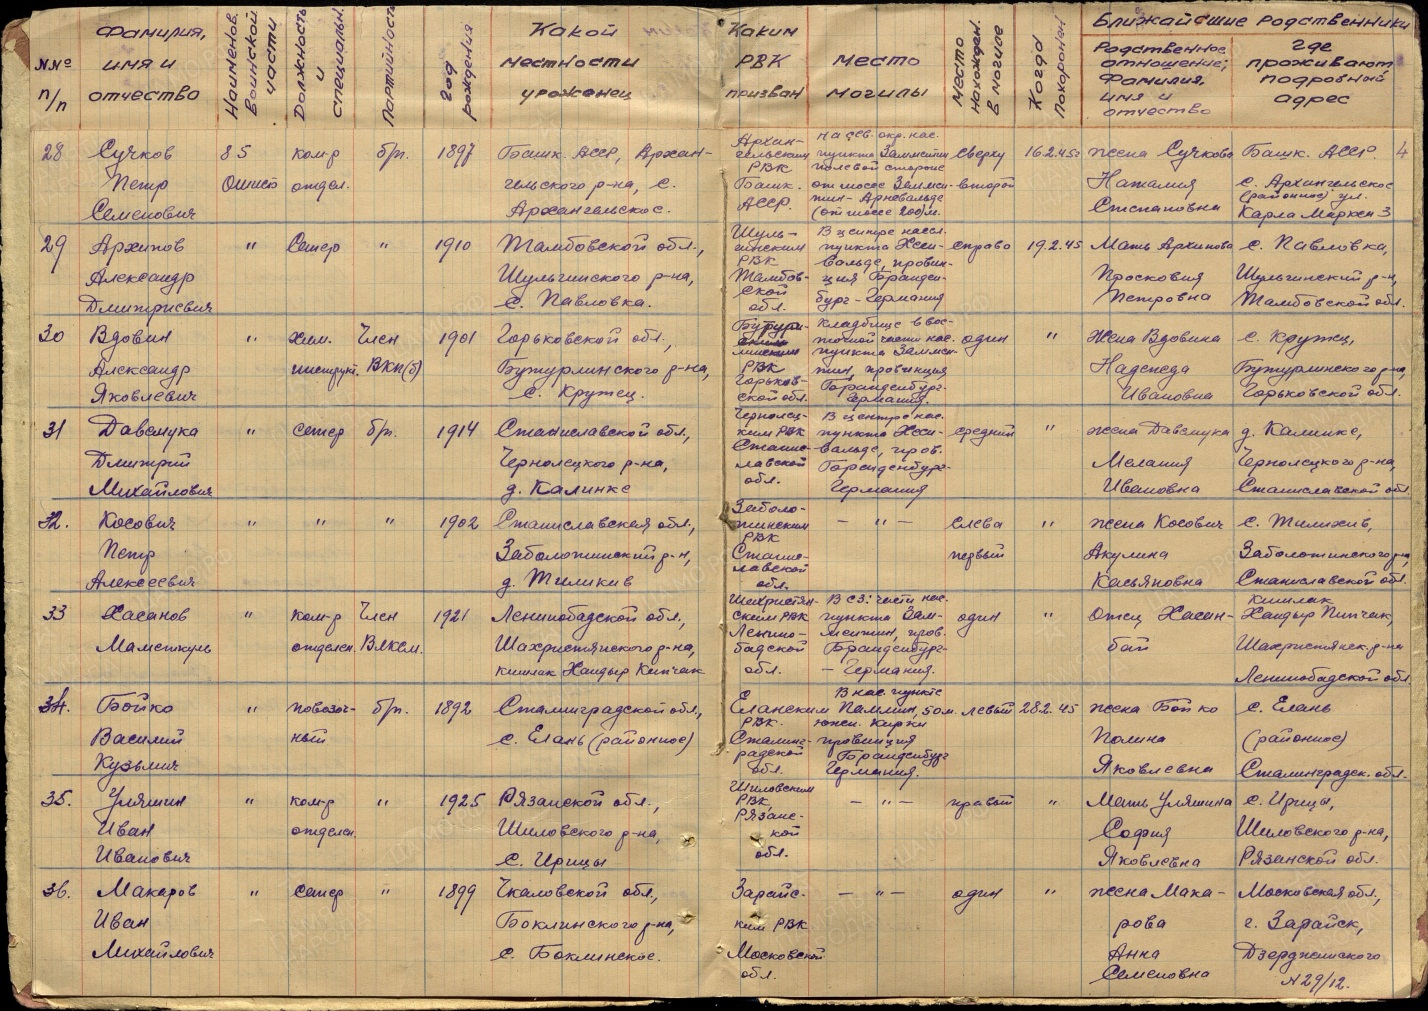 №№ п/п
Фамилия, имя и отчество
Наименов. воинской части
Должность и специальн.
Партийность
Год рождения
Какой местности уроженец
Каким РВК призван
Место могилы
Место нахожден. в могиле
Когда похоронен
Ближайшие родственники
Родственное отношение, Фамилия, имя и отчество
Где проживают подробный адрес
4
28 Сучков Петр Семенович
85 Ошисб
ком-р отдел.
бр.
1897
Башк. АССР, Архангельского р-на, с. Архангельское.
Архангельским РВК Башк. АССР.
на сев. окр. нас. пункта
от шоссе
(от шоссе 200) м.
сверху второй
16.2.45г
жена Сучкова Наталия Степановна
Башк. АССР. с. Архангельское (районное) ул. Карла Маркса 3
29 Архипов Александр Дмитриевич
"
Сапер
"
1910
Тамбовской обл., Шульгинского р-на, с. Павловка.
Шульгинским РВК Тамбовской обл.
В центре насел. пункта Хесивальде, провинция Бранденбург-Германия
справо
19.2.45
Мать Архипова Просковия Петровна
с. Павловка, Шульгинский р-н, Тамбовской обл.
30 Вдовин Александр Яковлевич
"
хим. инструкт.
Член ВКП(б)
1901
Горьковской обл., Бутурлинского р-на, с. Кружец.
РВК Горьковской обл.
Кладбище в восточной части нас. пункта Заммтин, провинция Бранденбург-Германия.
один
"
Жена Вдовина Надежда Ивановна
с. Кружец, Бутурлинского р-на, Горьковской обл.
31 Давемука Дмитрий Михайлович
"
сапер
бр.
1914
Станиславской обл., Чернолецкого р-на, д. Калинке
Чернолецким РВК Станиславской обл.
В центре нас. пункта Хесивальде, пров. Бранденбург-Германия
средний
"
жена Давемука Мелания Ивановна
д. Калинке, Чернолецкого р-на, Станиславской обл.
32. Косович Петр Алексеевич
"
"
"
1902
Станиславская обл., Заболотинский р-н, д. Тиликив
Заболотинским РВК Станиславской обл.
— " —
слева первый
"
жена Косович Акулина Касьяновна
с. Тилихив, Заболотинского р-на, Станиславской обл.
33 Хасанов Маметкуль
"
ком-р отделен.
Член ВЛКСМ.
1921
Ленинобадской обл., Шахристянского р-на, кишлак Хандыр Кипчак
Шахристян-ским РВК Ленинобадской обл.
В с.з. части нас. пункта Заммтин, пров. Бранденбург-Германия.
один
"
Отец Хасанбай
кишлак Хандыр Пипчак, Шахристянск. р-на Ленинобадской обл.
34. Бойко Василий Кузьмич
"
повозочный
бр.
1892
Сталинградской обл., с. Елань (районное)
Еланским РВК. Сталинградской обл.
В нас. пункте 50 м. южн. кирхи провинция Бранденбург Германия.
левый
28.2.45
жена Бойко Полина Яковлевна
с. Елань (районное) Сталинградск. обл.
35. Уляшин Иван Иванович
"
ком-р отделен.
"
1925
Рязанской обл., Шиловского р-на, с. Ирицы
Шиловским РВК, Рязанской обл.
— " —
правый
"
Мать Уляшина София Яковлевна
с. Ирицы, Шиловского р-на, Рязанской обл.
36. Макаров Иван Михайлович
"
сапер
"
1899
Чкаловской обл., Боклинского р-на, с. Боклинское.
Зарайским РВК Московской обл.
— " —
один
"
жена Макарова Анна Семеновна
Московская обл., г. Зарайск, Дзержинского № 29/12.